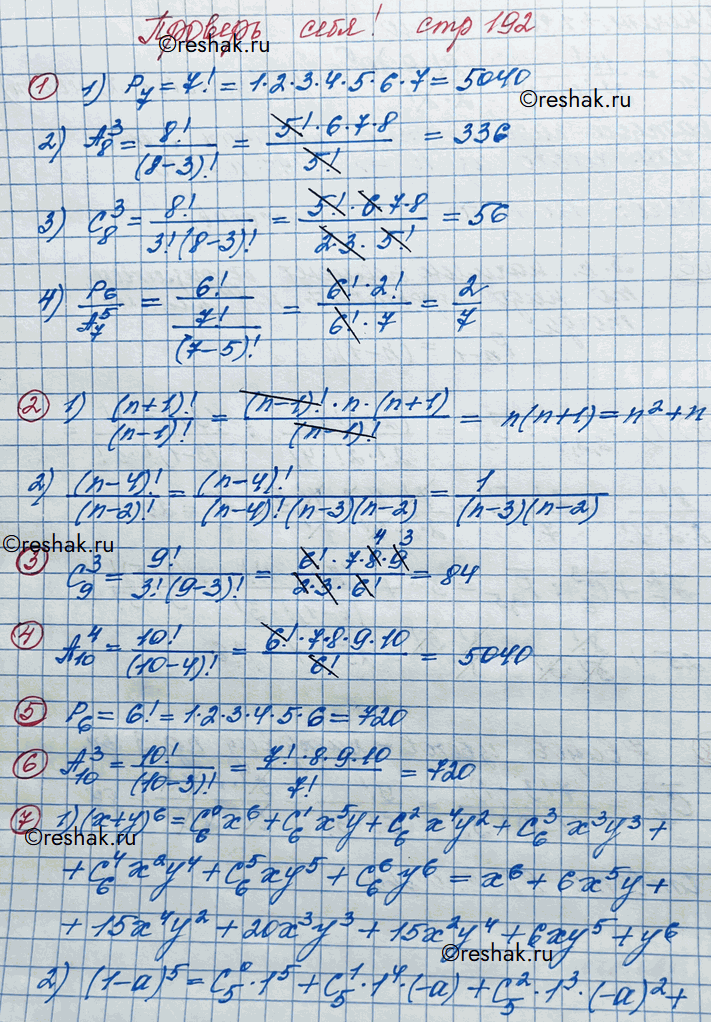 Проверь себя! стр 192
©reshak.ru
① 1) P₇ = 7! = 1·2·3·4·5·6·7 = 5040
©reshak.ru
2) A₈³ = 8!/(8-3)! = 5!·6·7·8/5! = 336
3) C₈³ = 8!/3!(8-3)! = 5!·6·7·8/2·3·5! = 56
4) P₆/A₇⁵ = 6!/(7!/(7-5)!) = 6!·2!/6!·7 = 2/7
② 1) (n+1)!/(n-1)! = (n-1)!·n·(n+1)/(n-1)! = n(n+1) = n²+n
2) (n-4)!/(n-2)! = (n-4)!/(n-4)!(n-3)(n-2) = 1/(n-3)(n-2)
©reshak.ru
③ C₉³ = 9!/3!(9-3)! = 6!·7·8·9/2·3·6! = 84
4 3
④ A₁₀⁴ = 10!/(10-4)! = 6!·7·8·9·10/6! = 5040
⑤ P₆ = 6! = 1·2·3·4·5·6 = 720
⑥ A₁₀³ = 10!/(10-3)! = 7!·8·9·10/7! = 720
⑦ 1) (x+y)⁶ = C₆⁰x⁶ + C₆¹x⁵y + C₆²x⁴y² + C₆³x³y³ +
©reshak.ru
+ C₆⁴x²y⁴ + C₆⁵xy⁵ + C₆⁶y⁶ = x⁶ + 6x⁵y +
+ 15x⁴y² + 20x³y³ + 15x²y⁴ + 6xy⁵ + y⁶
©reshak.ru
2) (1-a)⁵ = C₅⁰·1⁵ + C₅¹·1⁴·(-a) + C₅²·1³·(-a)² +